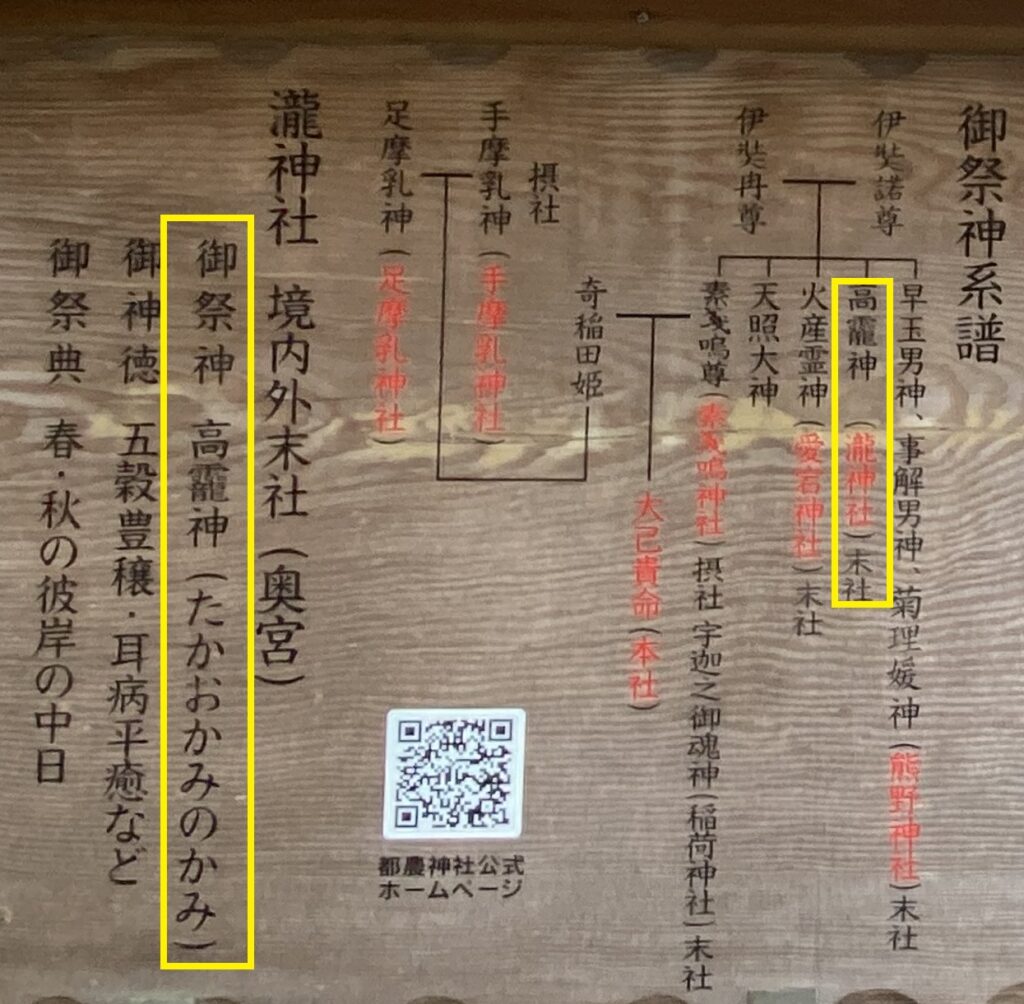 御祭神系譜
伊弉諾尊
伊弉冉尊
早玉男神、事解男神、菊理媛神（熊野神社）末社
高龗神（瀧神社）末社
火産霊神（愛宕神社）末社
天照大神
素戔嗚尊（素戔嗚神社）摂社 宇迦之御魂神（稲荷神社）末社
大己貴命（本社）
奇稲田姫
摂社
手摩乳神（手摩乳神社）
足摩乳神（足摩乳神社）
瀧神社 境内外末社（奥宮）
御祭神 高龗神（たかおかみのかみ）
御神徳 五穀豊穣・耳病平癒など
御祭典 春・秋の彼岸の中日
都農神社公式
ホームページ